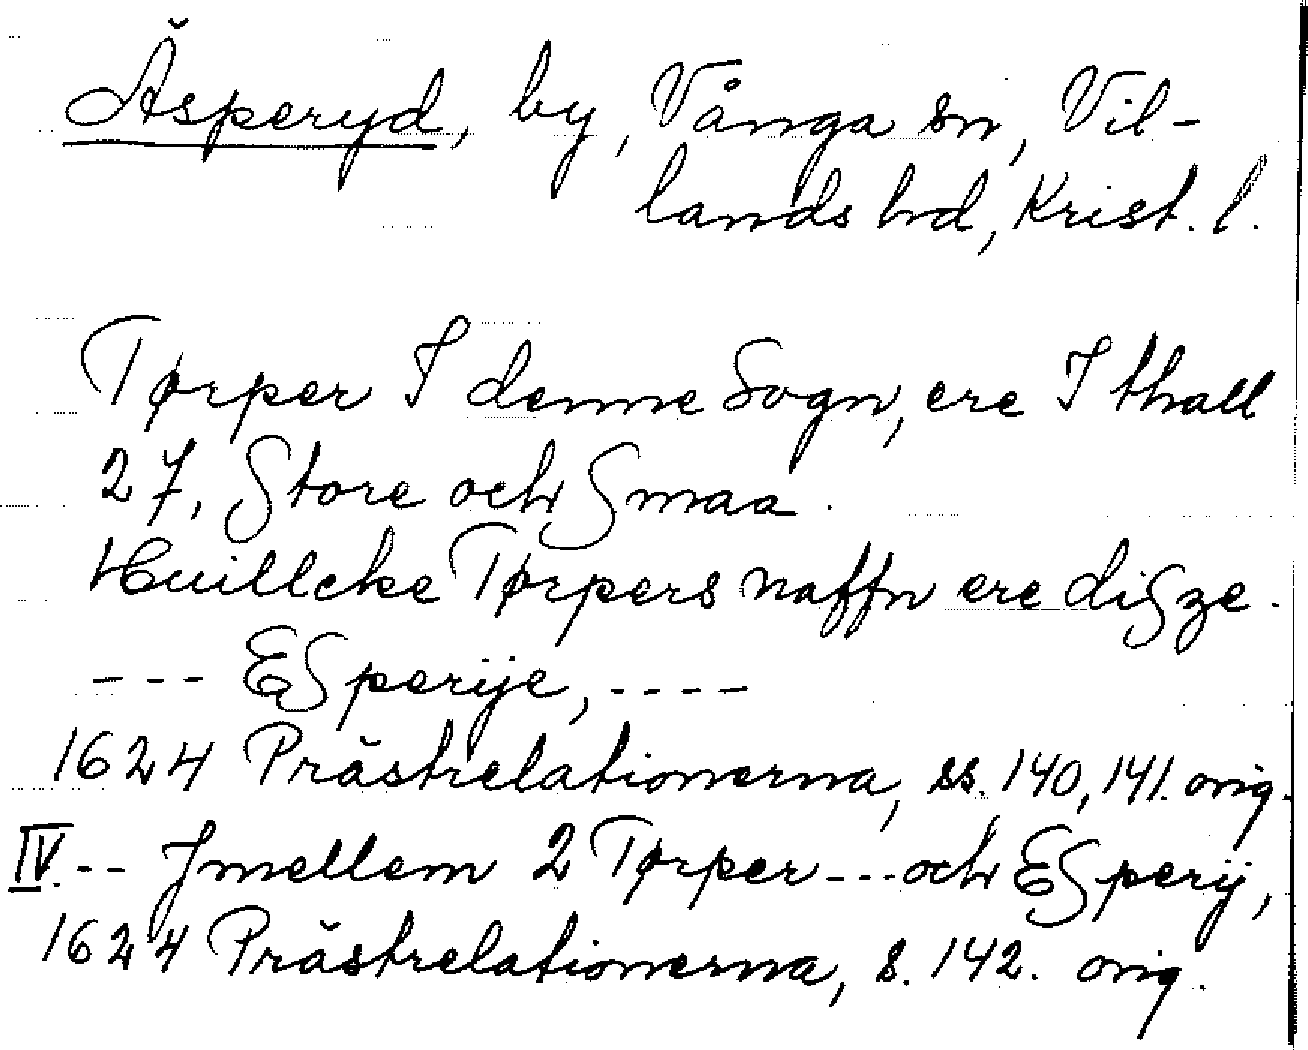 Äsperyd, by, Vånga sn, Vil-
lands hd, Krist. l.
Tørper I denne Sogn, ere I thall
27, Store och Smaa.
Huillcke Tørpers naffn ere diSze.
--- ESperije, ----
1624 Prästrelationerna, ss. 140, 141. orig.
IV. -- Jmellem 2 Tørper --- och ESperij,
1624 Prästrelationerna, s. 142. orig.